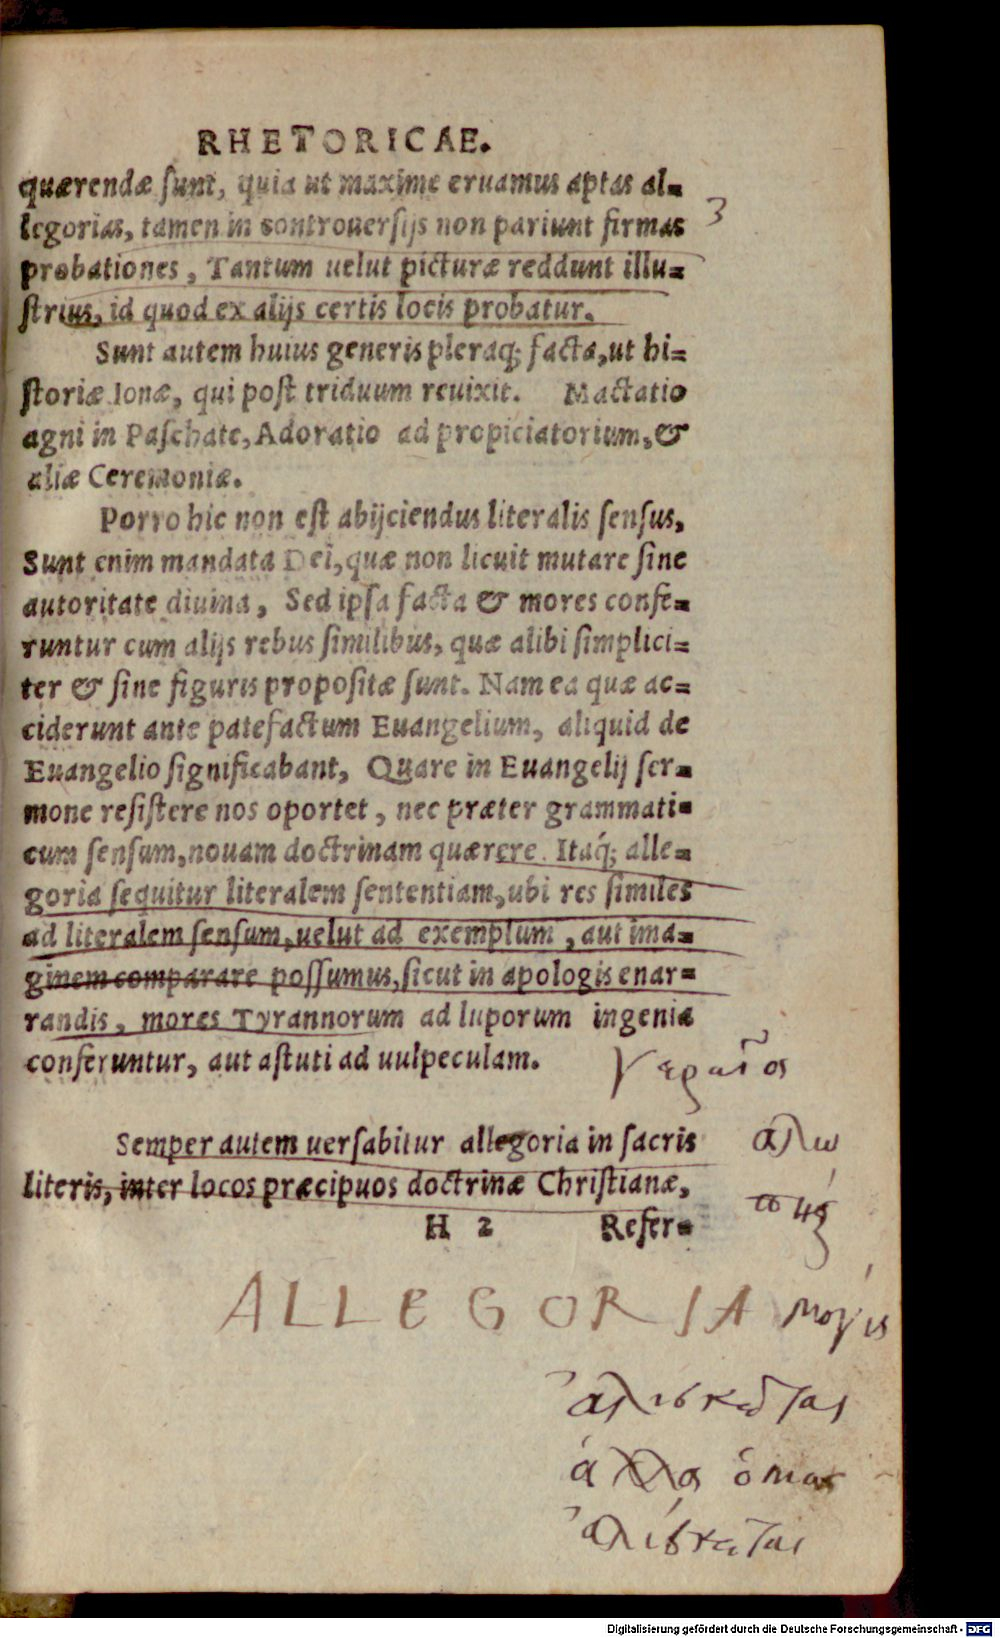 RHETORICAE.
quærendæ sunt, quia ut maxime eruamus aptas al=
legorias, tamen in controuersijs non pariunt firmas
3
probationes, Tantum uelut picturæ reddunt illu=
strius, id quod ex alijs certis locis probatur.
Sunt autem huius generis pleraq; facta, ut hi=
storiæ Ionæ, qui post triduum reuixit. Mactatio
agni in Paschate, Adoratio ad propiciatorium, &
aliæ Ceremoniæ.
Porro hic non est abijciendus literalis sensus,
Sunt enim mandata Dei, quæ non licuit mutare sine
autoritate diuina, Sed ipsa facta & mores confe=
runtur cum alijs rebus similibus, quæ alibi simplici=
ter & sine figuris propositæ sunt. Nam ea quæ ac=
ciderunt ante patefactum Euangelium, aliquid de
Euangelio significabant, Quare in Euangelij ser=
mone resistere nos oportet, nec præter grammati=
cum sensum, nouam doctrinam quærere. Itaq́; alle=
goria sequitur literalem sententiam, ubi res similes
ad literalem sensum, uelut ad exemplum, aut ima=
ginem comparare possumus, sicut in apologis enar=
randis, mores Tyrannorum ad luporum ingenia
conferuntur, aut astuti ad uulpeculam.
Semper autem uersabitur allegoria in sacris
αλω
literis, inter locos præcipuos doctrinæ Christianæ,
H 2 Refer=
ALLEGORIA μογις